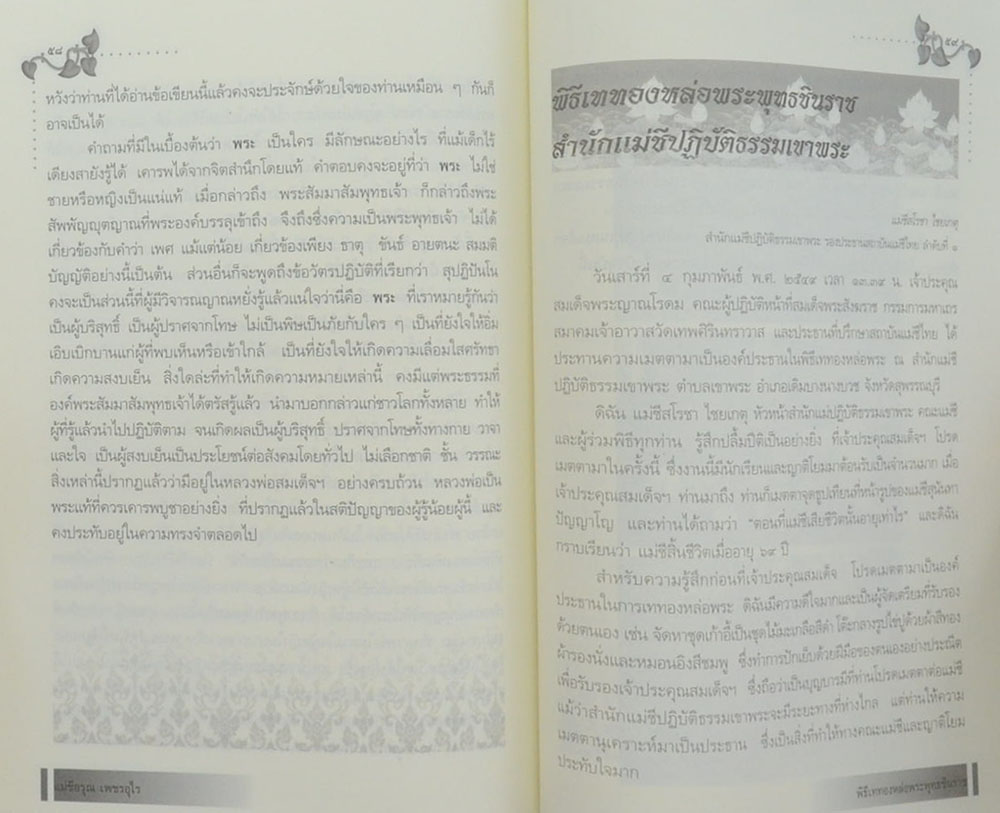 ๕๘
หวังว่าท่านที่ได้อ่านข้อเขียนนี้แล้วคงจะประจักษ์ด้วยใจของท่านเหมือน ๆ กันก็
อาจเป็นได้
คำถามที่มีในเบื้องต้นว่า พระ เป็นใคร มีลักษณะอย่างไร ที่แม้เด็กไร้
เดียงสายังรู้ได้ เคารพได้จากจิตสำนึกโดยแท้ คำตอบคงจะอยู่ที่ว่า พระ ไม่ใช่
ชายหรือหญิงเป็นแน่แท้ เมื่อกล่าวถึง พระสัมมาสัมพุทธเจ้า ก็กล่าวถึงพระ
สัพพัญญุตญาณที่พระองค์บรรลุเข้าถึง จึงถึงซึ่งความเป็นพระพุทธเจ้า ไม่ได้
เกี่ยวข้องกับคำว่า เพศ แม้แต่น้อย เกี่ยวข้องเพียง ธาตุ ขันธ์ อายตนะ สมมติ
บัญญัติอย่างนี้เป็นต้น ส่วนอื่นก็จะพูดถึงข้อวัตรปฏิบัติที่เรียกว่า สุปฏิปันโน
คงจะเป็นส่วนนี้ที่ผู้มีวิจารณญาณหยั่งรู้แล้วแน่ใจว่านี่คือ พระ ที่เราหมายรู้กันว่า
เป็นผู้บริสุทธิ์ เป็นผู้ปราศจากโทษ ไม่เป็นพิษเป็นภัยกับใคร ๆ เป็นที่ยังใจให้อิ่ม
เอิบเบิกบานแก่ผู้ที่พบเห็นหรือเข้าใกล้ เป็นที่ยังใจให้เกิดความเลื่อมใสศรัทธา
เกิดความสงบเย็น สิ่งใดล่ะที่ทำให้เกิดความหมายเหล่านี้ คงมีแต่พระธรรมที่
องค์พระสัมมาสัมพุทธเจ้าได้ตรัสรู้แล้ว นำมาบอกกล่าวแก่ชาวโลกทั้งหลาย ทำให้
ผู้ที่รู้แล้วนำไปปฏิบัติตาม จนเกิดผลเป็นผู้บริสุทธิ์ ปราศจากโทษทั้งทางกาย วาจา
และใจ เป็นผู้สงบเย็นเป็นประโยชน์ต่อสังคมโดยทั่วไป ไม่เลือกชาติ ชั้น วรรณะ
สิ่งเหล่านี้ปรากฏแล้วว่ามีอยู่ในหลวงพ่อสมเด็จฯ อย่างครบถ้วน หลวงพ่อเป็น
พระแท้ที่ควรเคารพบูชาอย่างยิ่ง ที่ปรากฏแล้วในสติปัญญาของผู้รู้น้อยผู้นี้ และ
คงประทับอยู่ในความทรงจำตลอดไป
แม่ชีอรุณ เพชรอุไร
๕๙
พิธีเททองหล่อพระพุทธชินราช
สำนักแม่ชีปฏิบัติธรรมเขาพระ
แม่ชีสโรชา ไชยเกตุ
สำนักแม่ชีปฏิบัติธรรมเขาพระ รองประธานสถาบันแม่ชีไทย ลำดับที่ ๑
วันเสาร์ที่ ๔ กุมภาพันธ์ พ.ศ. ๒๕๔๙ เวลา ๑๓.๓๙ น. เจ้าประคุณ
สมเด็จพระญาณวโรดม คณะผู้ปฏิบัติหน้าที่สมเด็จพระสังฆราช กรรมการมหาเถร
สมาคมเจ้าอาวาสวัดเทพศิรินทราวาส และประธานที่ปรึกษาสถาบันแม่ชีไทย ได้
ประทานความเมตตามาเป็นองค์ประธานในพิธีเททองหล่อพระ ณ สำนักแม่ชี
ปฏิบัติธรรมเขาพระ ตำบลเขาพระ อำเภอเดิมบางนางบวช จังหวัดสุพรรณบุรี
ดิฉัน แม่ชีสโรชา ไชยเกตุ หัวหน้าสำนักแม่ปฏิบัติธรรมเขาพระ คณะแม่ชี
และผู้ร่วมพิธีทุกท่าน รู้สึกปลื้มปีติเป็นอย่างยิ่ง ที่เจ้าประคุณสมเด็จฯ โปรด
เมตตามาในครั้งนี้ ซึ่งงานนี้มีนักเรียนและญาติโยมมาต้อนรับเป็นจำนวนมาก เมื่อ
เจ้าประคุณสมเด็จฯ ท่านมาถึง ท่านก็เมตตาจุดธูปเทียนที่หน้ารูปของแม่ชีสุนันทา
ปัญญาโญ และท่านได้ถามว่า "ตอนที่แม่ชีเสียชีวิตนั้นอายุเท่าไร" และดิฉัน
กราบเรียนว่า แม่ชีสิ้นชีวิตเมื่ออายุ ๖๙ ปี
สำหรับความรู้สึกก่อนที่เจ้าประคุณสมเด็จ โปรดเมตตามาเป็นองค์
ประธานในการเททองหล่อพระ ดิฉันมีความดีใจมากและเป็นผู้จัดเตรียมที่รับรอง
ด้วยตนเอง เช่น จัดหาชุดเก้าอี้เป็นชุดไม้มะเกลือสีดำ โต๊ะกลางรูปไข่ปูด้วยผ้าสีทอง
ผ้ารองนั่งและหมอนอิงสีชมพู ซึ่งทำการปักเย็บด้วยฝีมือของตนเองอย่างประณีต
เพื่อรับรองเจ้าประคุณสมเด็จฯ ซึ่งถือว่าเป็นบุญบารมีที่ท่านโปรดเมตตาต่อแม่ชี
แม้ว่าสำนักแม่ชีปฏิบัติธรรมเขาพระจะมีระยะทางที่ห่างไกล แต่ท่านให้ความ
เมตตานุเคราะห์มาเป็นประธาน ซึ่งเป็นสิ่งที่ทำให้ทางคณะแม่ชีและญาติโยม
ประทับใจมาก
พิธีเททองหล่อพระพุทธชินราช